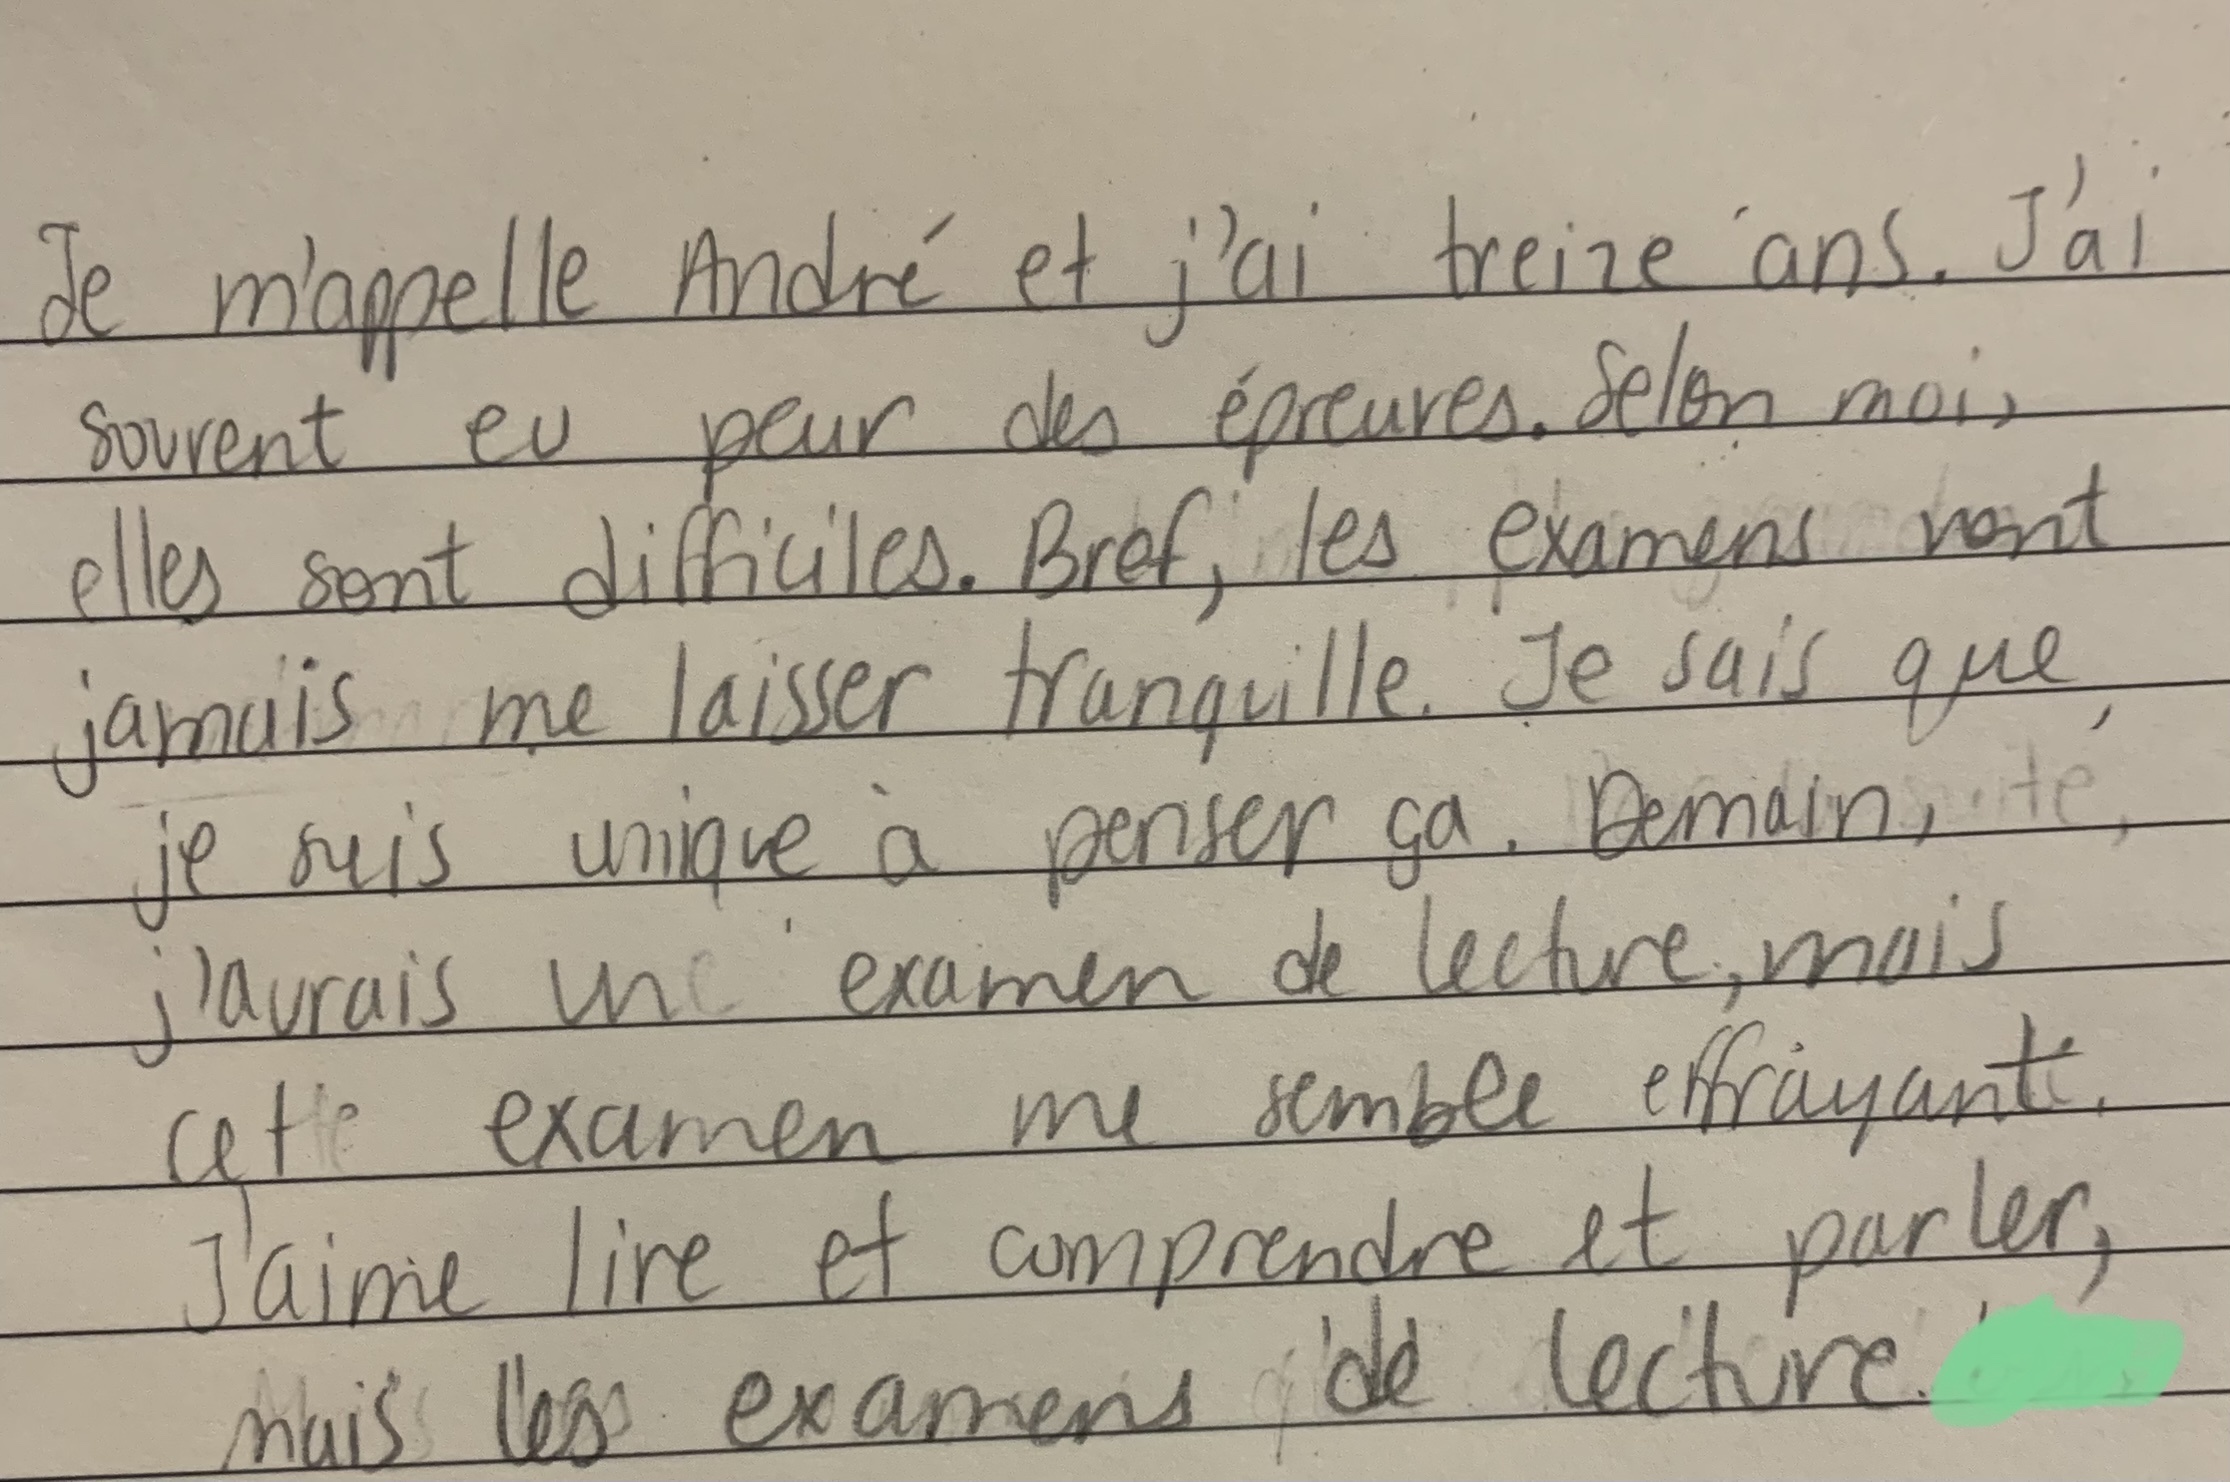 Je m'appelle André et j'ai treize ans. J'ai
souvent eu peur des épreuves. Selon moi,
elles sont difficiles. Bref, les examens vont
jamais me laisser tranquille. Je sais que,
je suis unique à penser ça. Demain,
j'aurais un examen de lecture, mais
cet examen me semble effrayant.
J'aime lire et comprendre et parler,
mais les examens de lecture.